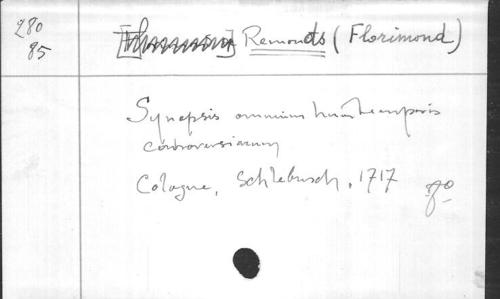 280
85
Remonds (Florimond)
Synopsis omnium hui temporis
controversiarum
Cologne, Schlebusch, 1717
8º